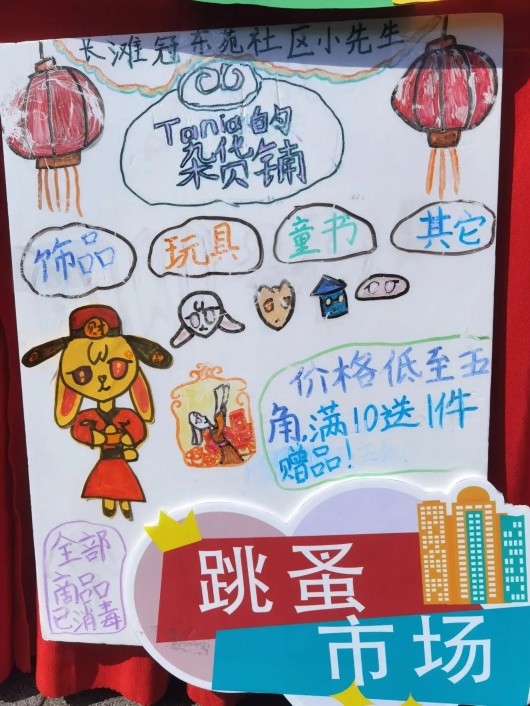 长滩冠东苑社区小先生
Tania的
杂货铺
饰品 玩具 童书 其它
财
价格低至五
角,满10送1件
赠品!
全部
商品
已消毒
跳蚤
市场